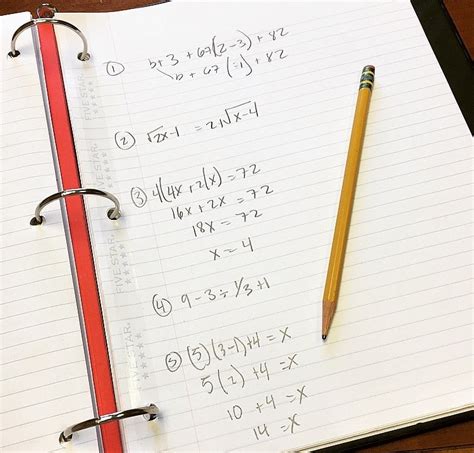 ① b+3 + 67(2-3)+82
b + 67 (-1) + 82
② √2x-1 = 21√x-4
③ 4(4x+2(x)=72
16x + 2x = 72
18x = 72
x = 4
④ 9-3÷1/3+1
⑤ (5)(3-1)+4=x
5(2) +4 =x
10 +4 =x
14 =x
FIVE STAR.
FIVE STAR.
FIVE STAR.
FIVE STAR.